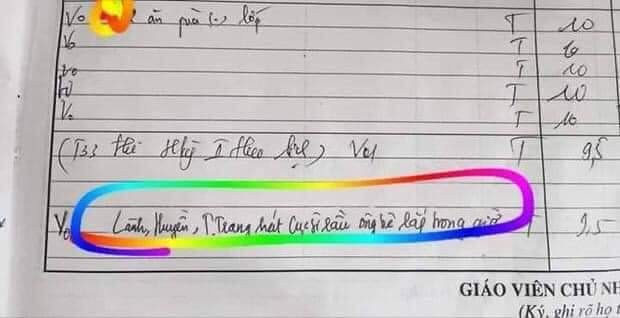 Vo ăn quà (..) lớp T 10
Vo T 10
Vo T 10
Vo T 10
Vo T 10
(T33 thi HKỳ I theo lịch) Vo1 T 9,5
Vo Lành, Huyền, T.Trang hát Cục sì lầu ông bê lắp trong giờ T 9,5
GIÁO VIÊN CHỦ NH
(Ký, ghi rõ họ t